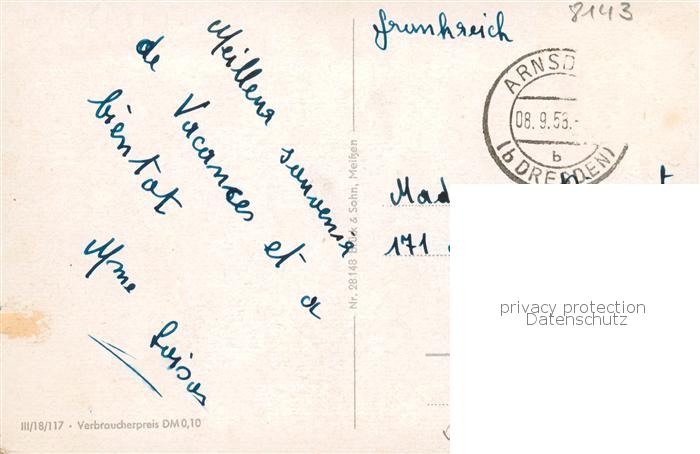 Meilleur souvenir
de Vacances et a
bientot
Mme Loison
III/18/117 • Verbraucherpreis DM 0,10
Nr. 28148 Brück & Sohn, Meißen
frankreich
8143
ARNSD
08.9.58.-
b
(b DRESDEN)
Mad
171
privacy protection
Datenschutz